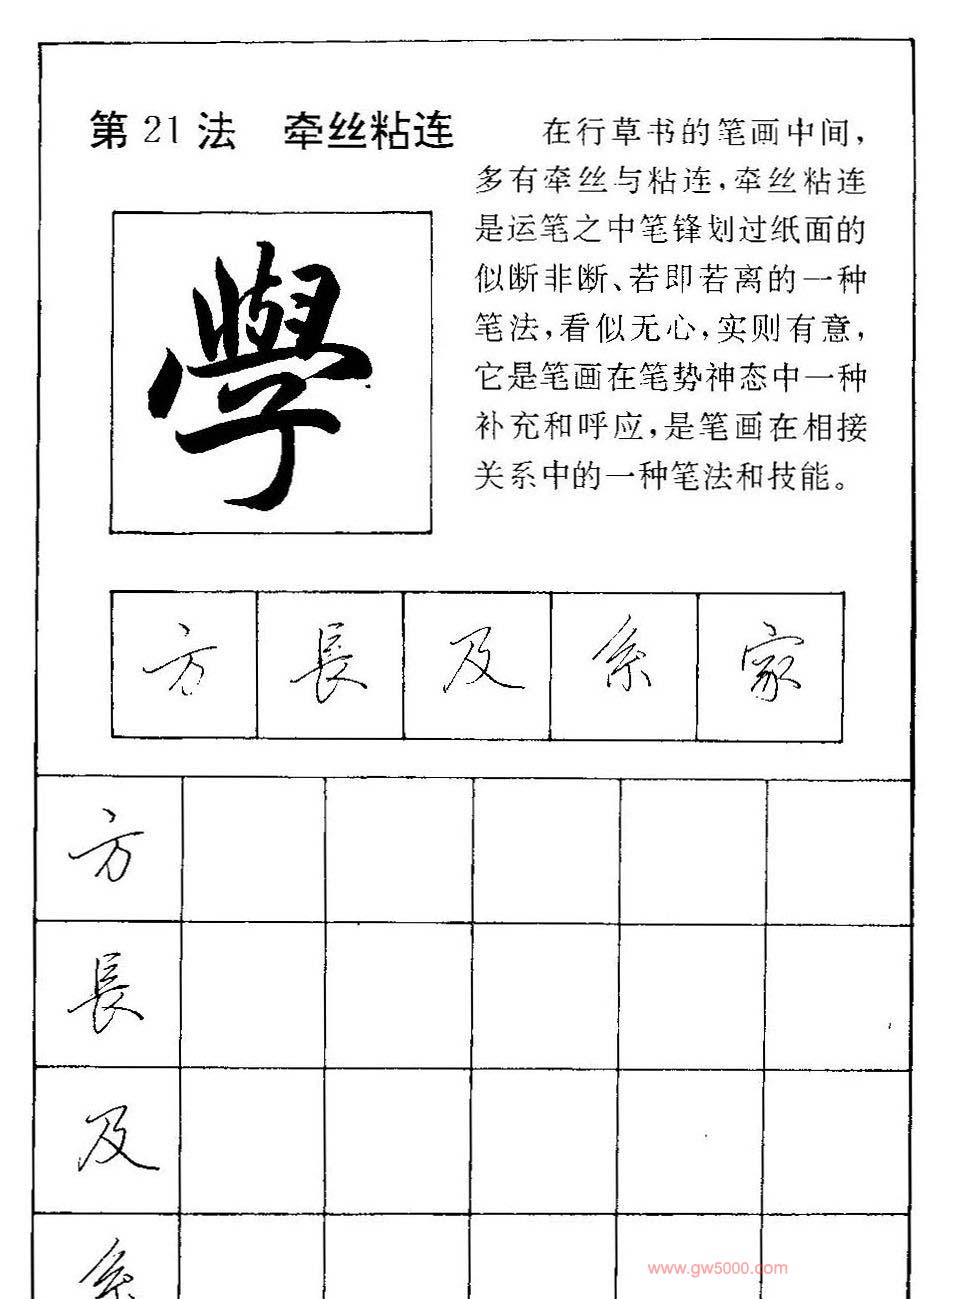 第21法 牵丝粘连
在行草书的笔画中间，
多有牵丝与粘连，牵丝粘连
是运笔之中笔锋划过纸面的
似断非断、若即若离的一种
笔法，看似无心，实则有意，
它是笔画在笔势神态中一种
补充和呼应，是笔画在相接
关系中的一种笔法和技能。
學
方 長 及 系 家
方
長
及
系
www.gw5000.com